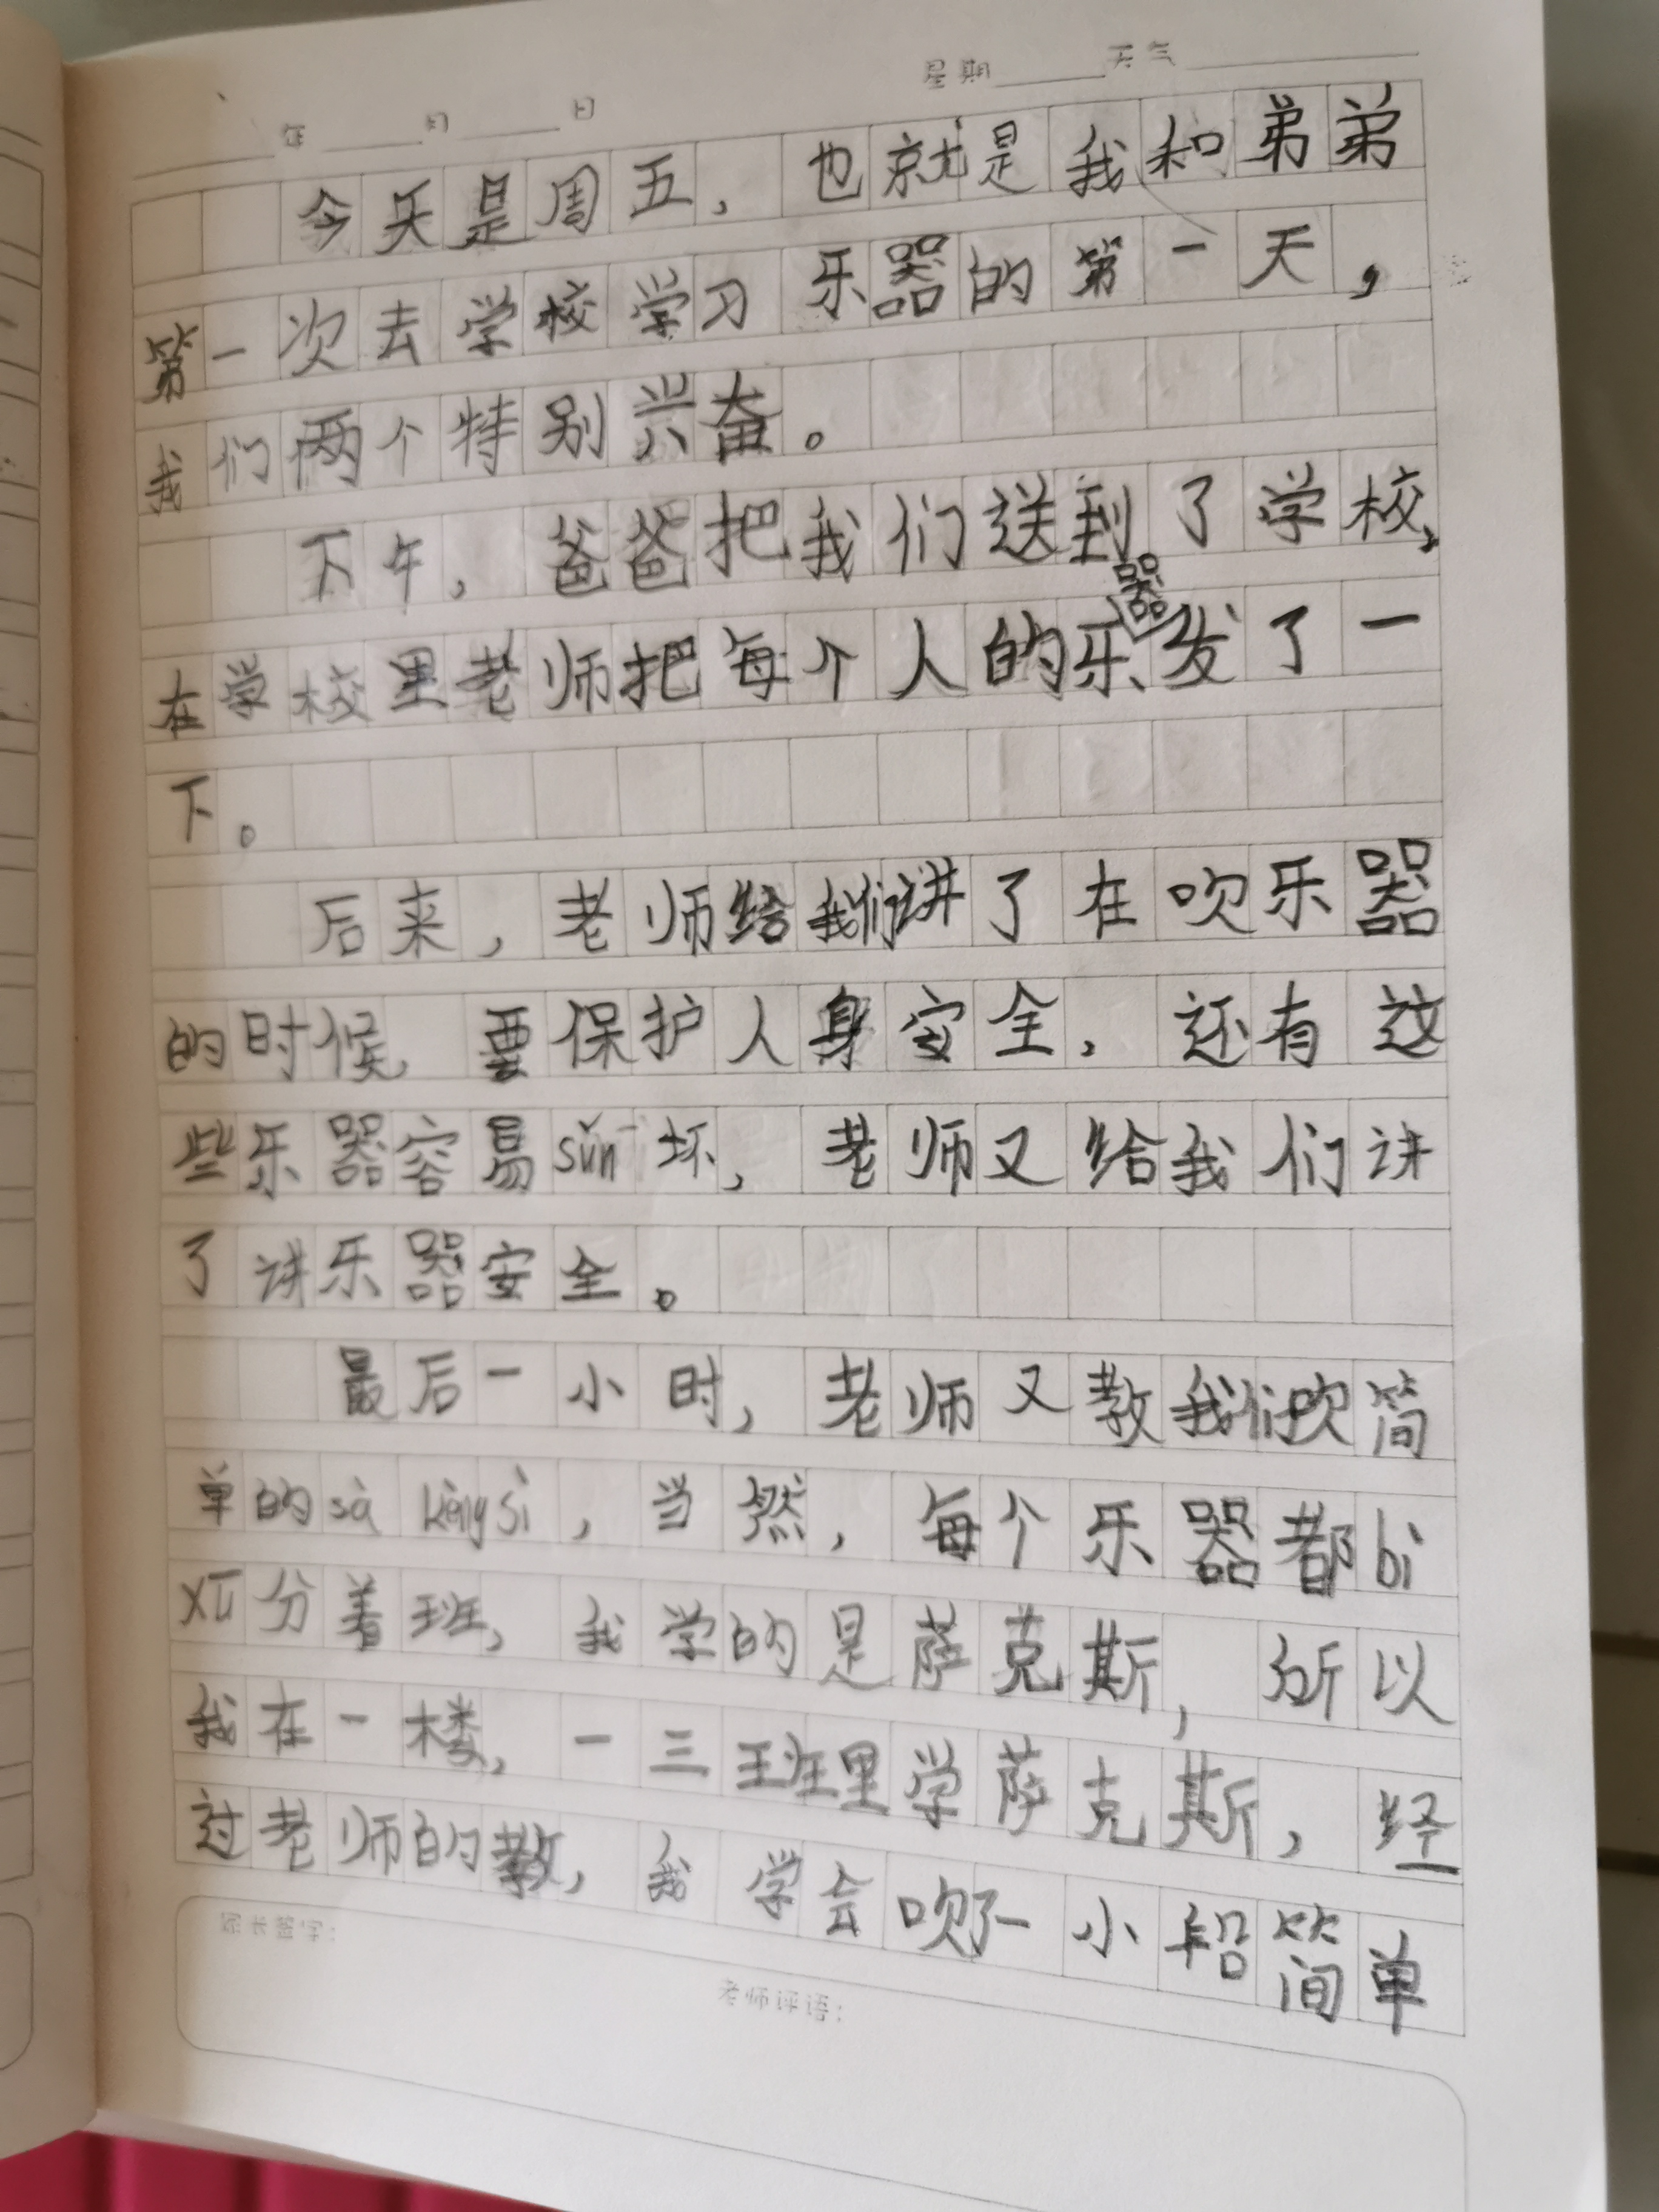 年 月 日 星期 天气
今天是周五，也就是我和弟弟
第一次去学校学习乐器的第一天，
我们两个特别兴奋。
下午，爸爸把我们送到了学校，
在学校里老师把每个人的乐器发了一
下。
后来，老师给我们讲了在吹乐器
的时候，要保护人身安全，还有这
些乐器容易sǔn坏，老师又给我们讲
了讲乐器安全。
最后一小时，老师又教我们吹简
单的sà kēng sī，当然，每个乐器都bì
xū分着班，我学的是萨克斯，所以
我在一楼，一三班里学萨克斯，经
过老师的教，我学会吹了一小段简单
家长签字：
老师评语：